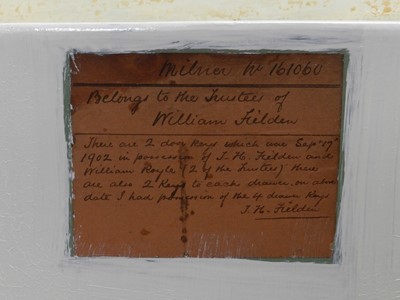 Milner No 161060
Belongs to the Trustees of
William Fielden
There are 2 door keys which were Sepr 17th
1902 in possession of J. H. Fielden and
William Royle (2 of the Trustees) there
are also 2 Keys to each drawer on above
date I had possession of the 4 drawer Keys
J. H. Fielden